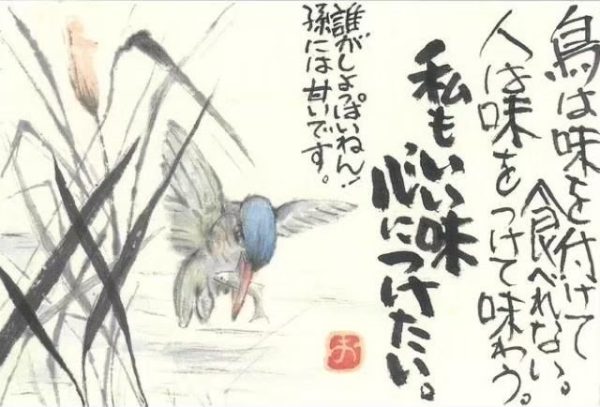 鳥は味を付けて
食べれない。
人は味をつけて味わう。
私もいい味
心につけたい。
誰がしょっぱいねん!
孫には甘いです。